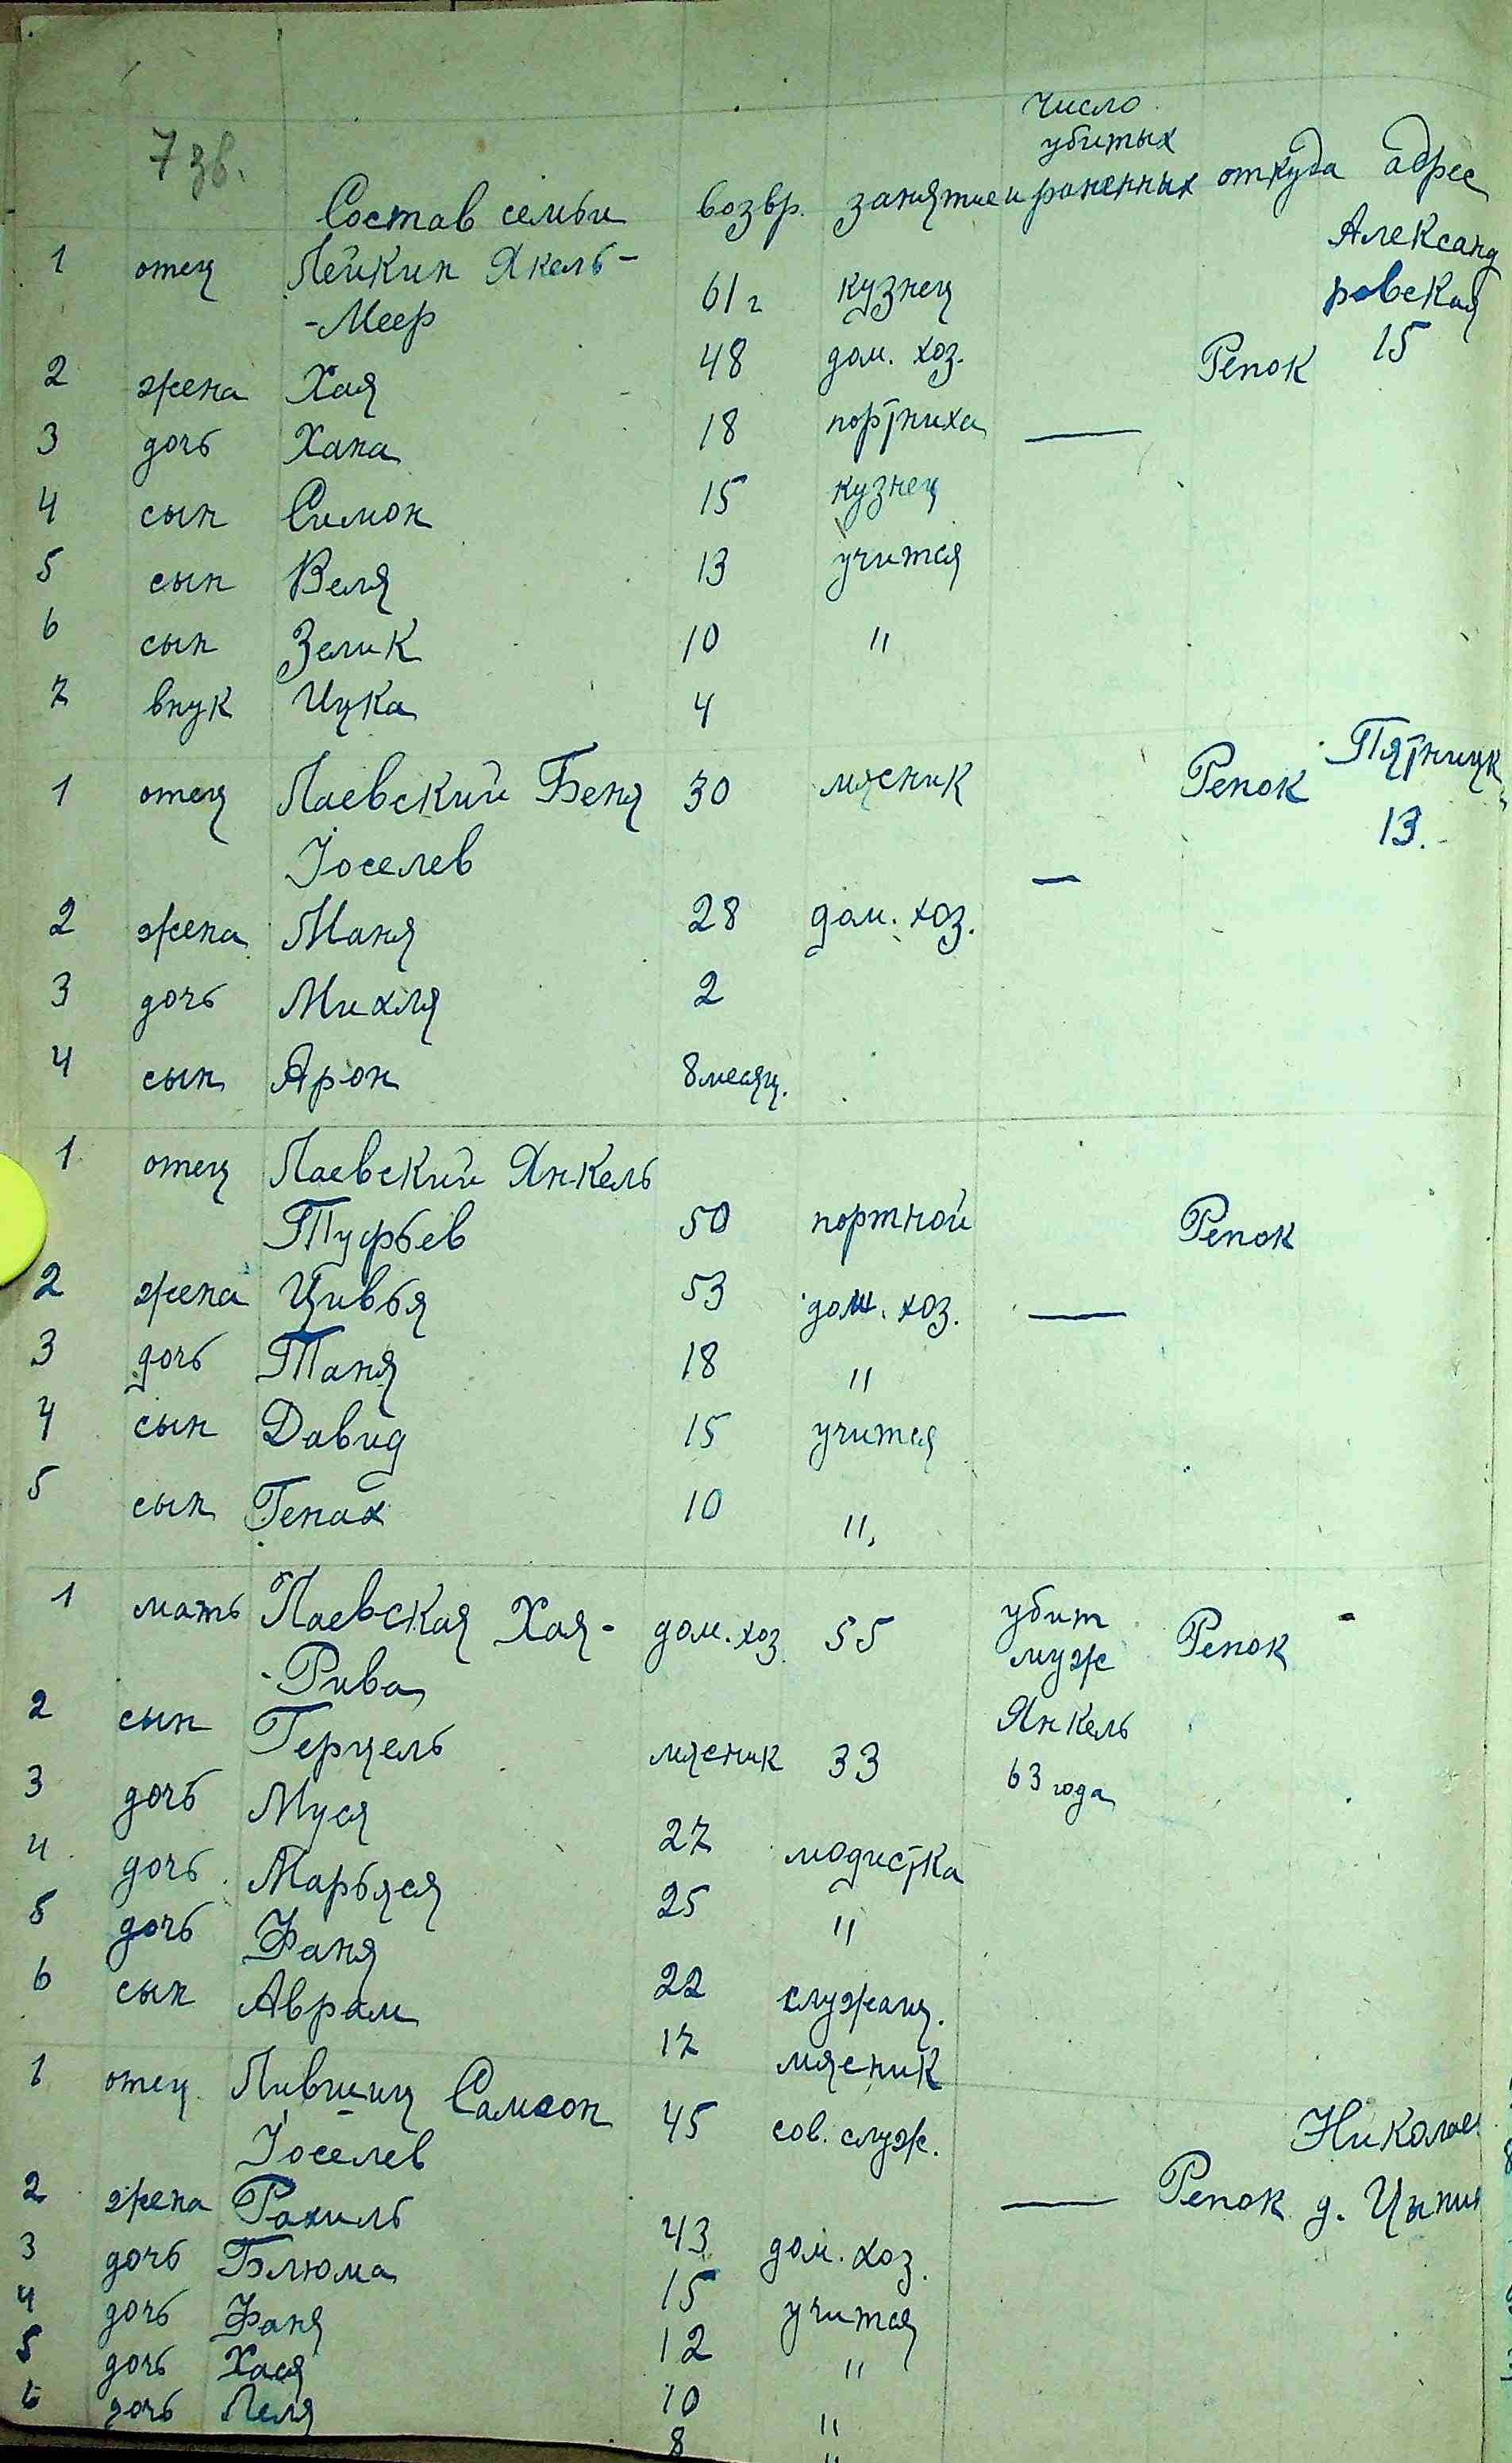 7 зв.
Состав семьи возвр. занятие число убитых и раненных откуда адрес
1 отец Лейкин Якель- 61 г кузнец Александ
-Меер ровская
2 жена Хая 48 дом. хоз. Репок 15
3 дочь Хана 18 портниха —
4 сын Симон 15 кузнец
5 сын Веля 13 учится
6 сын Зелик 10 "
7 внук Ицка 4
1 отец Лаевский Беня 30 мясник Репок Пятницк
Іоселев — 13.
2 жена Маня 28 дом. хоз.
3 дочь Михля 2
4 сын Арон 8 месяц.
1 отец Лаевский Янкель
Туфьев 50 портной Репок
2 жена Цивья 53 дом. хоз. —
3 дочь Таня 18 "
4 сын Давид 15 учится
5 сын Генах 10 "
1 мать Лаевская Хая- дом. хоз. 55 убит Репок
-Рива муж
2 сын Герцель мясник 33 Янкель
3 дочь Муся 27 модистка 63 года
4 дочь Марьяся 25 "
5 дочь Фаня 22 служащ.
6 сын Аврам 17 мясник
1 отец Лившиц Самсон 45 сов. служ. Николаев
Іоселев
2 жена Рахиль 43 дом. хоз. — Репок д. Цыпи
3 дочь Блюма 15 учится
4 дочь Фаня 12 "
5 дочь Хася 10 "
6 дочь Леля 8 "